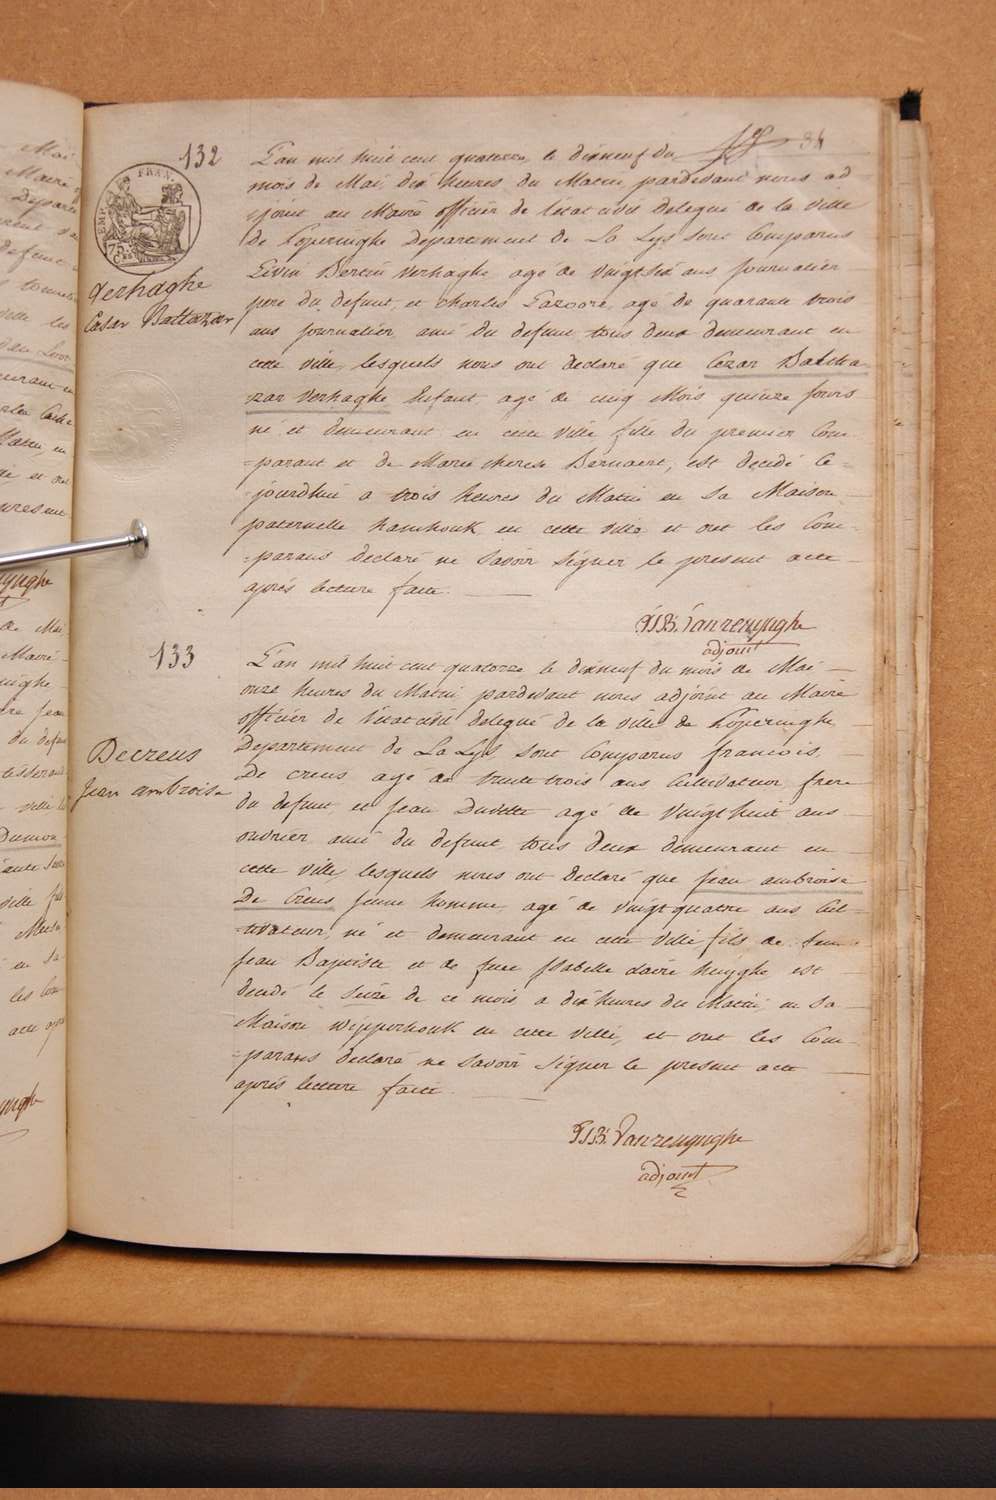 84
132
EMP. FRAN.
75.
C.
Verhaghe
Cesar Baltazar
L'an mil huit cent quatorze, le dixneuf du
mois de Mai, dix heures du Matin, pardevant nous ad
joint au Maire officier de l'état civil delegué de la ville
de Poperinghe Departement de La Lys sont Comparus
Livin Bertin Verhaghe agé de vingt six ans journalier
pere du defunt, et Charles agé de quarante trois
ans journalier ami du defunt, tous deux demeurant en
cette ville, lesquels nous ont declaré que Cezar Baltha
zar Verhaghe Enfant, agé de cinq Mois quinze jours
né et demeurant en cette ville fils du premier Com-
=parant et de Marie therese Bernaert, est decedé ce-
=jourdhui a trois heures du Matin en sa Maison
paternelle hamhouk en cette ville et ont les Com-
=parans declaré ne savoir signer le present acte
après lecture faite.
J.B. Vanrenynghe
adjoint
133
Decreus
Jean ambroise
L'an mil huit cent quatorze le dixneuf du mois de Mai
onze heures du Matin pardevant nous adjoint au Maire
officier de l'état civil delegué de la ville de Poperinghe
Departement de La Lys, sont Comparus francois
De creus agé de trente trois ans Cultivateur, frere
du defunt, et Jean Duvette agé de vingt huit ans
ouvrier ami du defunt, tous deux demeurant en
cette ville, lesquels nous ont declaré que Jean ambroise
De Creus jeune homme, agé de vingt quatre ans Cul-
=tivateur, né et demeurant en cette ville fils de feu
Jean Baptiste et de feue Isabelle claire huyghe est
decedé le seize de ce mois a dix heures du Matin, en sa
Maison wipperhouk en cette ville, et ont les Com-
=parans declaré ne savoir signer le present acte
après lecture faite
J.B. Vanrenynghe
adjoint